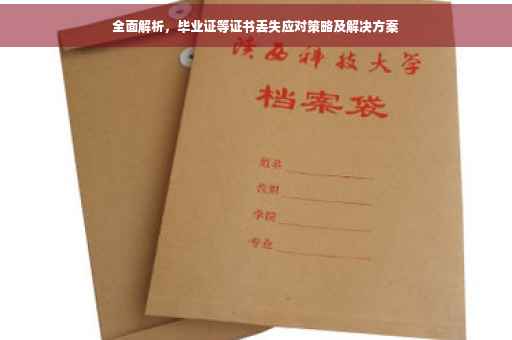 全面解析，毕业证等证书丢失应对策略及解决方案
陕西科技大学
档案袋
姓名
学院
专业